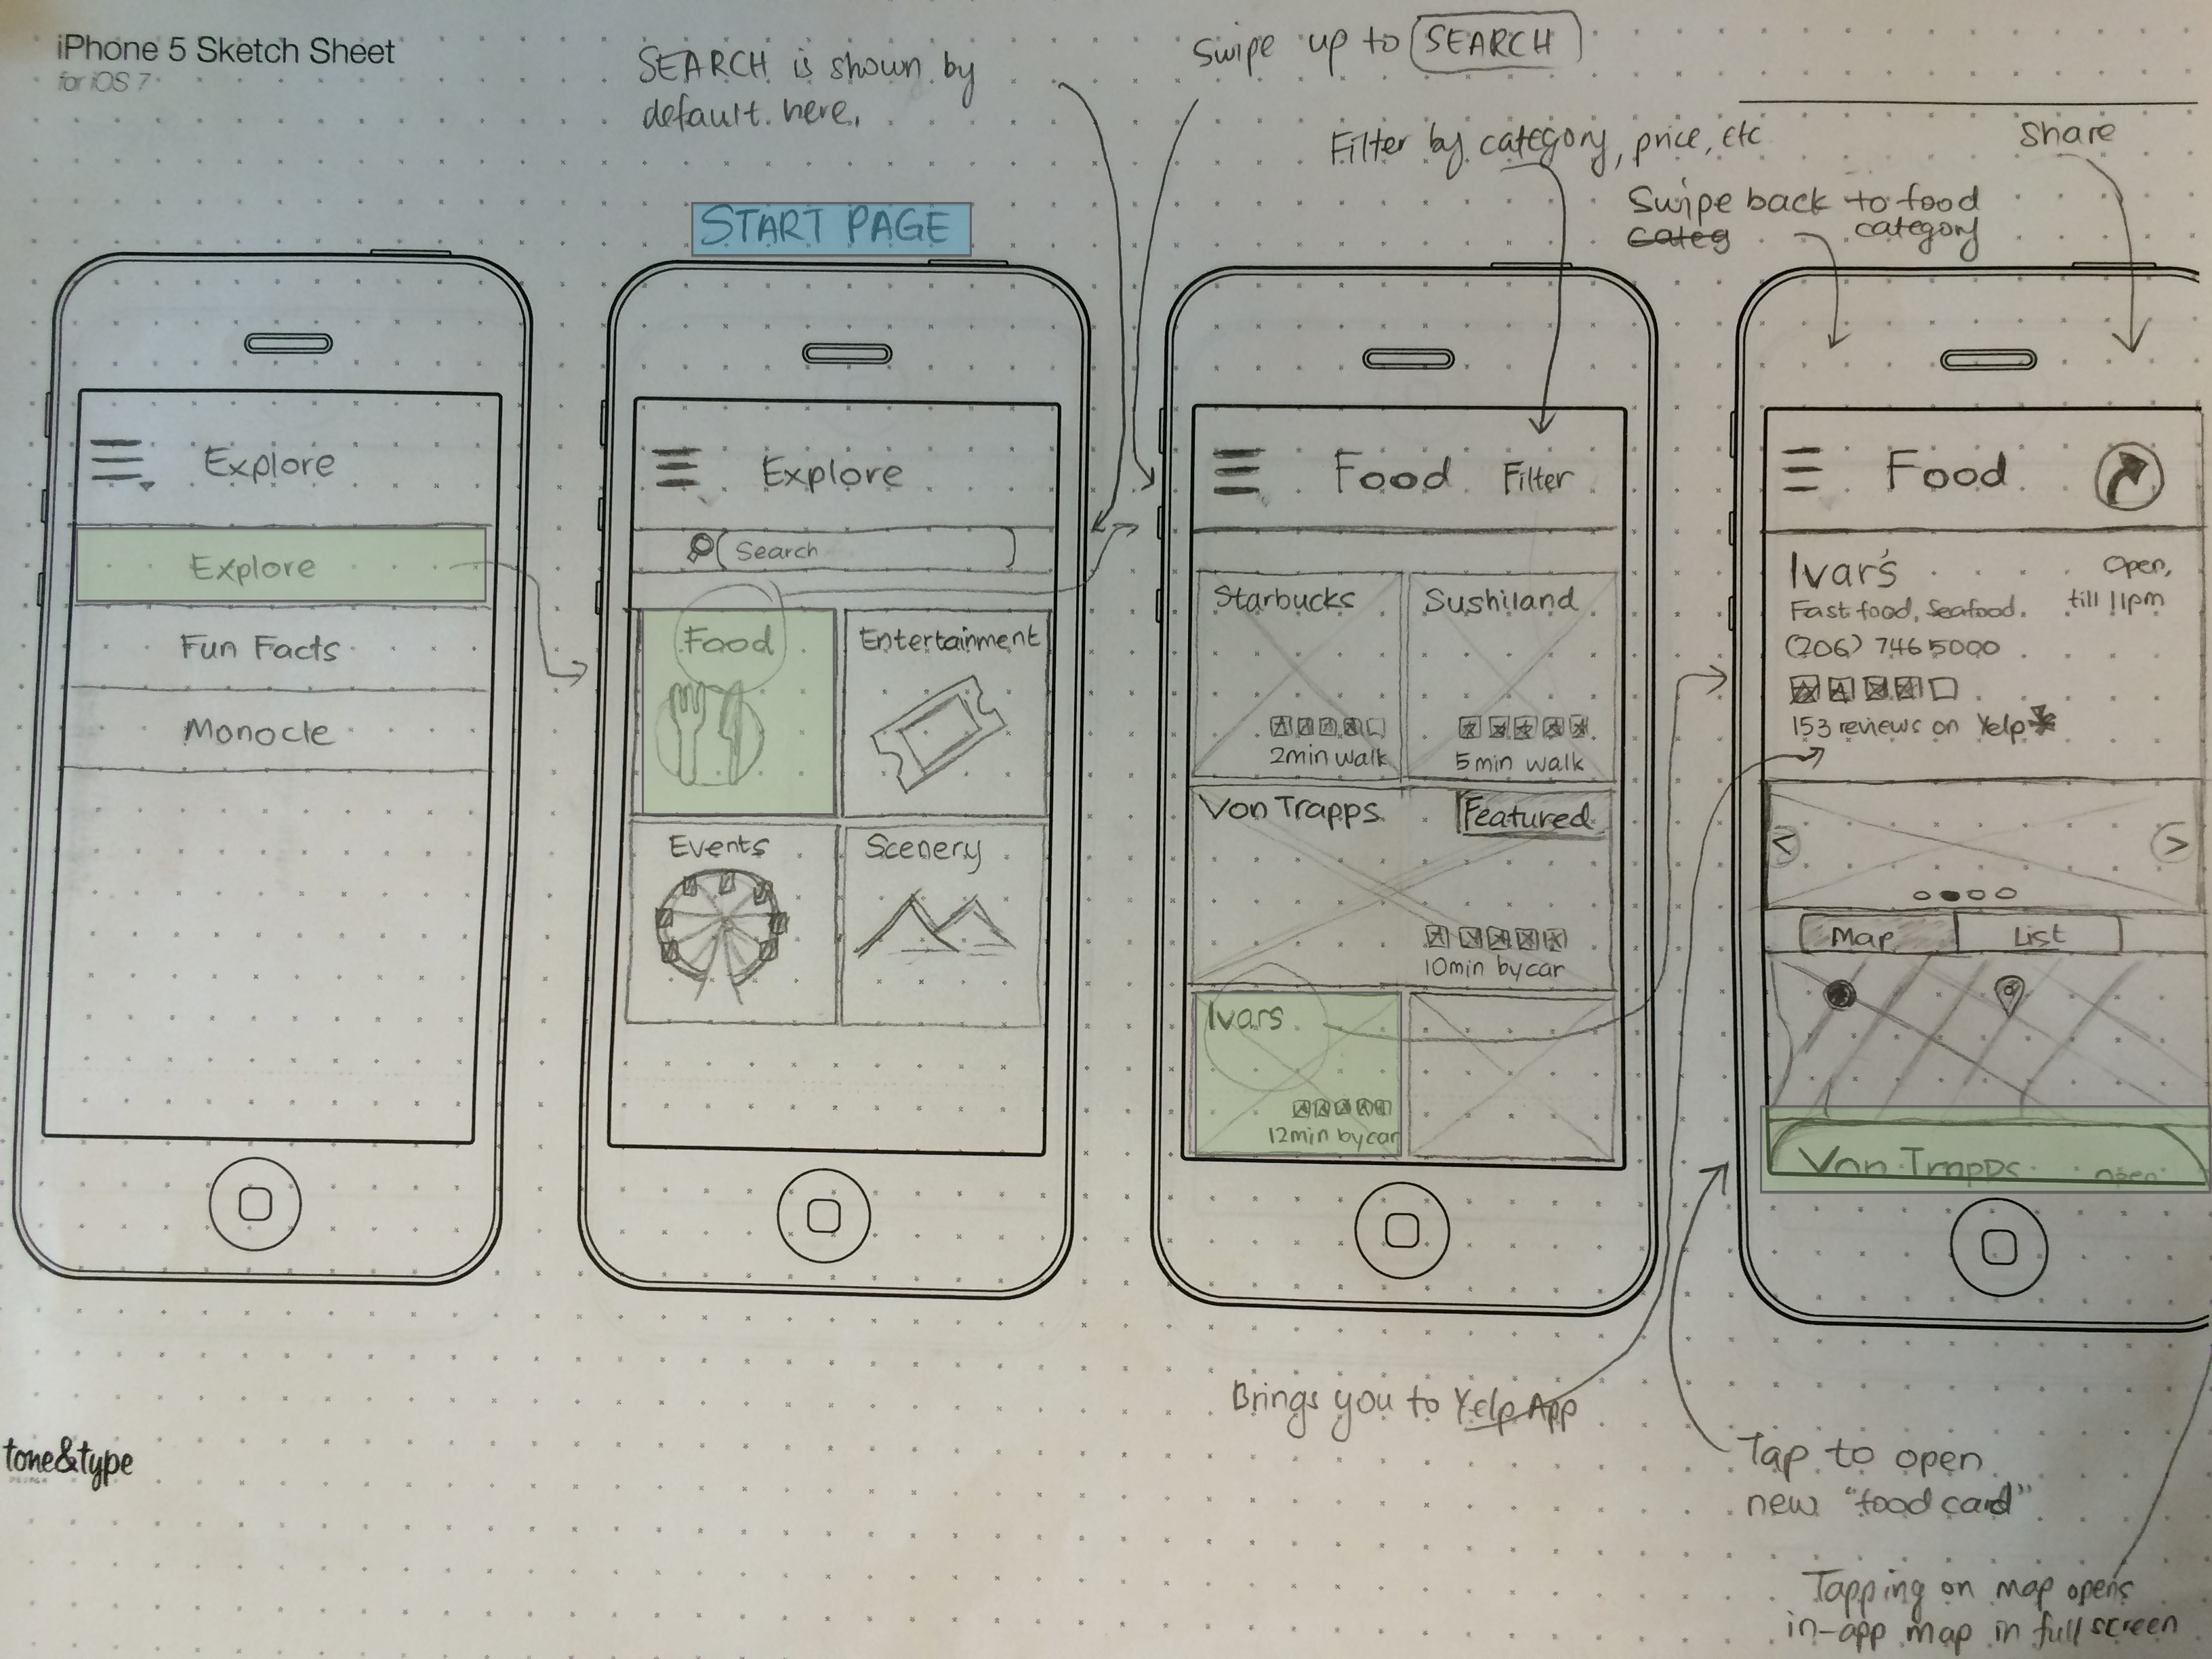 iPhone 5 Sketch Sheet
for iOS 7
SEARCH is shown by
default here.
Swipe up to SEARCH
Filter by category, price, etc
Share
Swipe back to food
categ category
START PAGE
Explore
Explore
Fun Facts
Monocle
Explore
Search
Food
Entertainment
Events
Scenery
Food Filter
Starbucks
2min walk
Sushiland
5 min walk
Von Trapps Featured
10min by car
Ivars
12min by car
Food
Ivar's
Open,
till 11pm
Fast food, Seafood.
(206) 746 5000
153 reviews on Yelp
< >
Map List
Von Trapps open
Brings you to Yelp App
Tap to open
new "food card"
Tapping on map opens
in-app map in full screen
tone&type